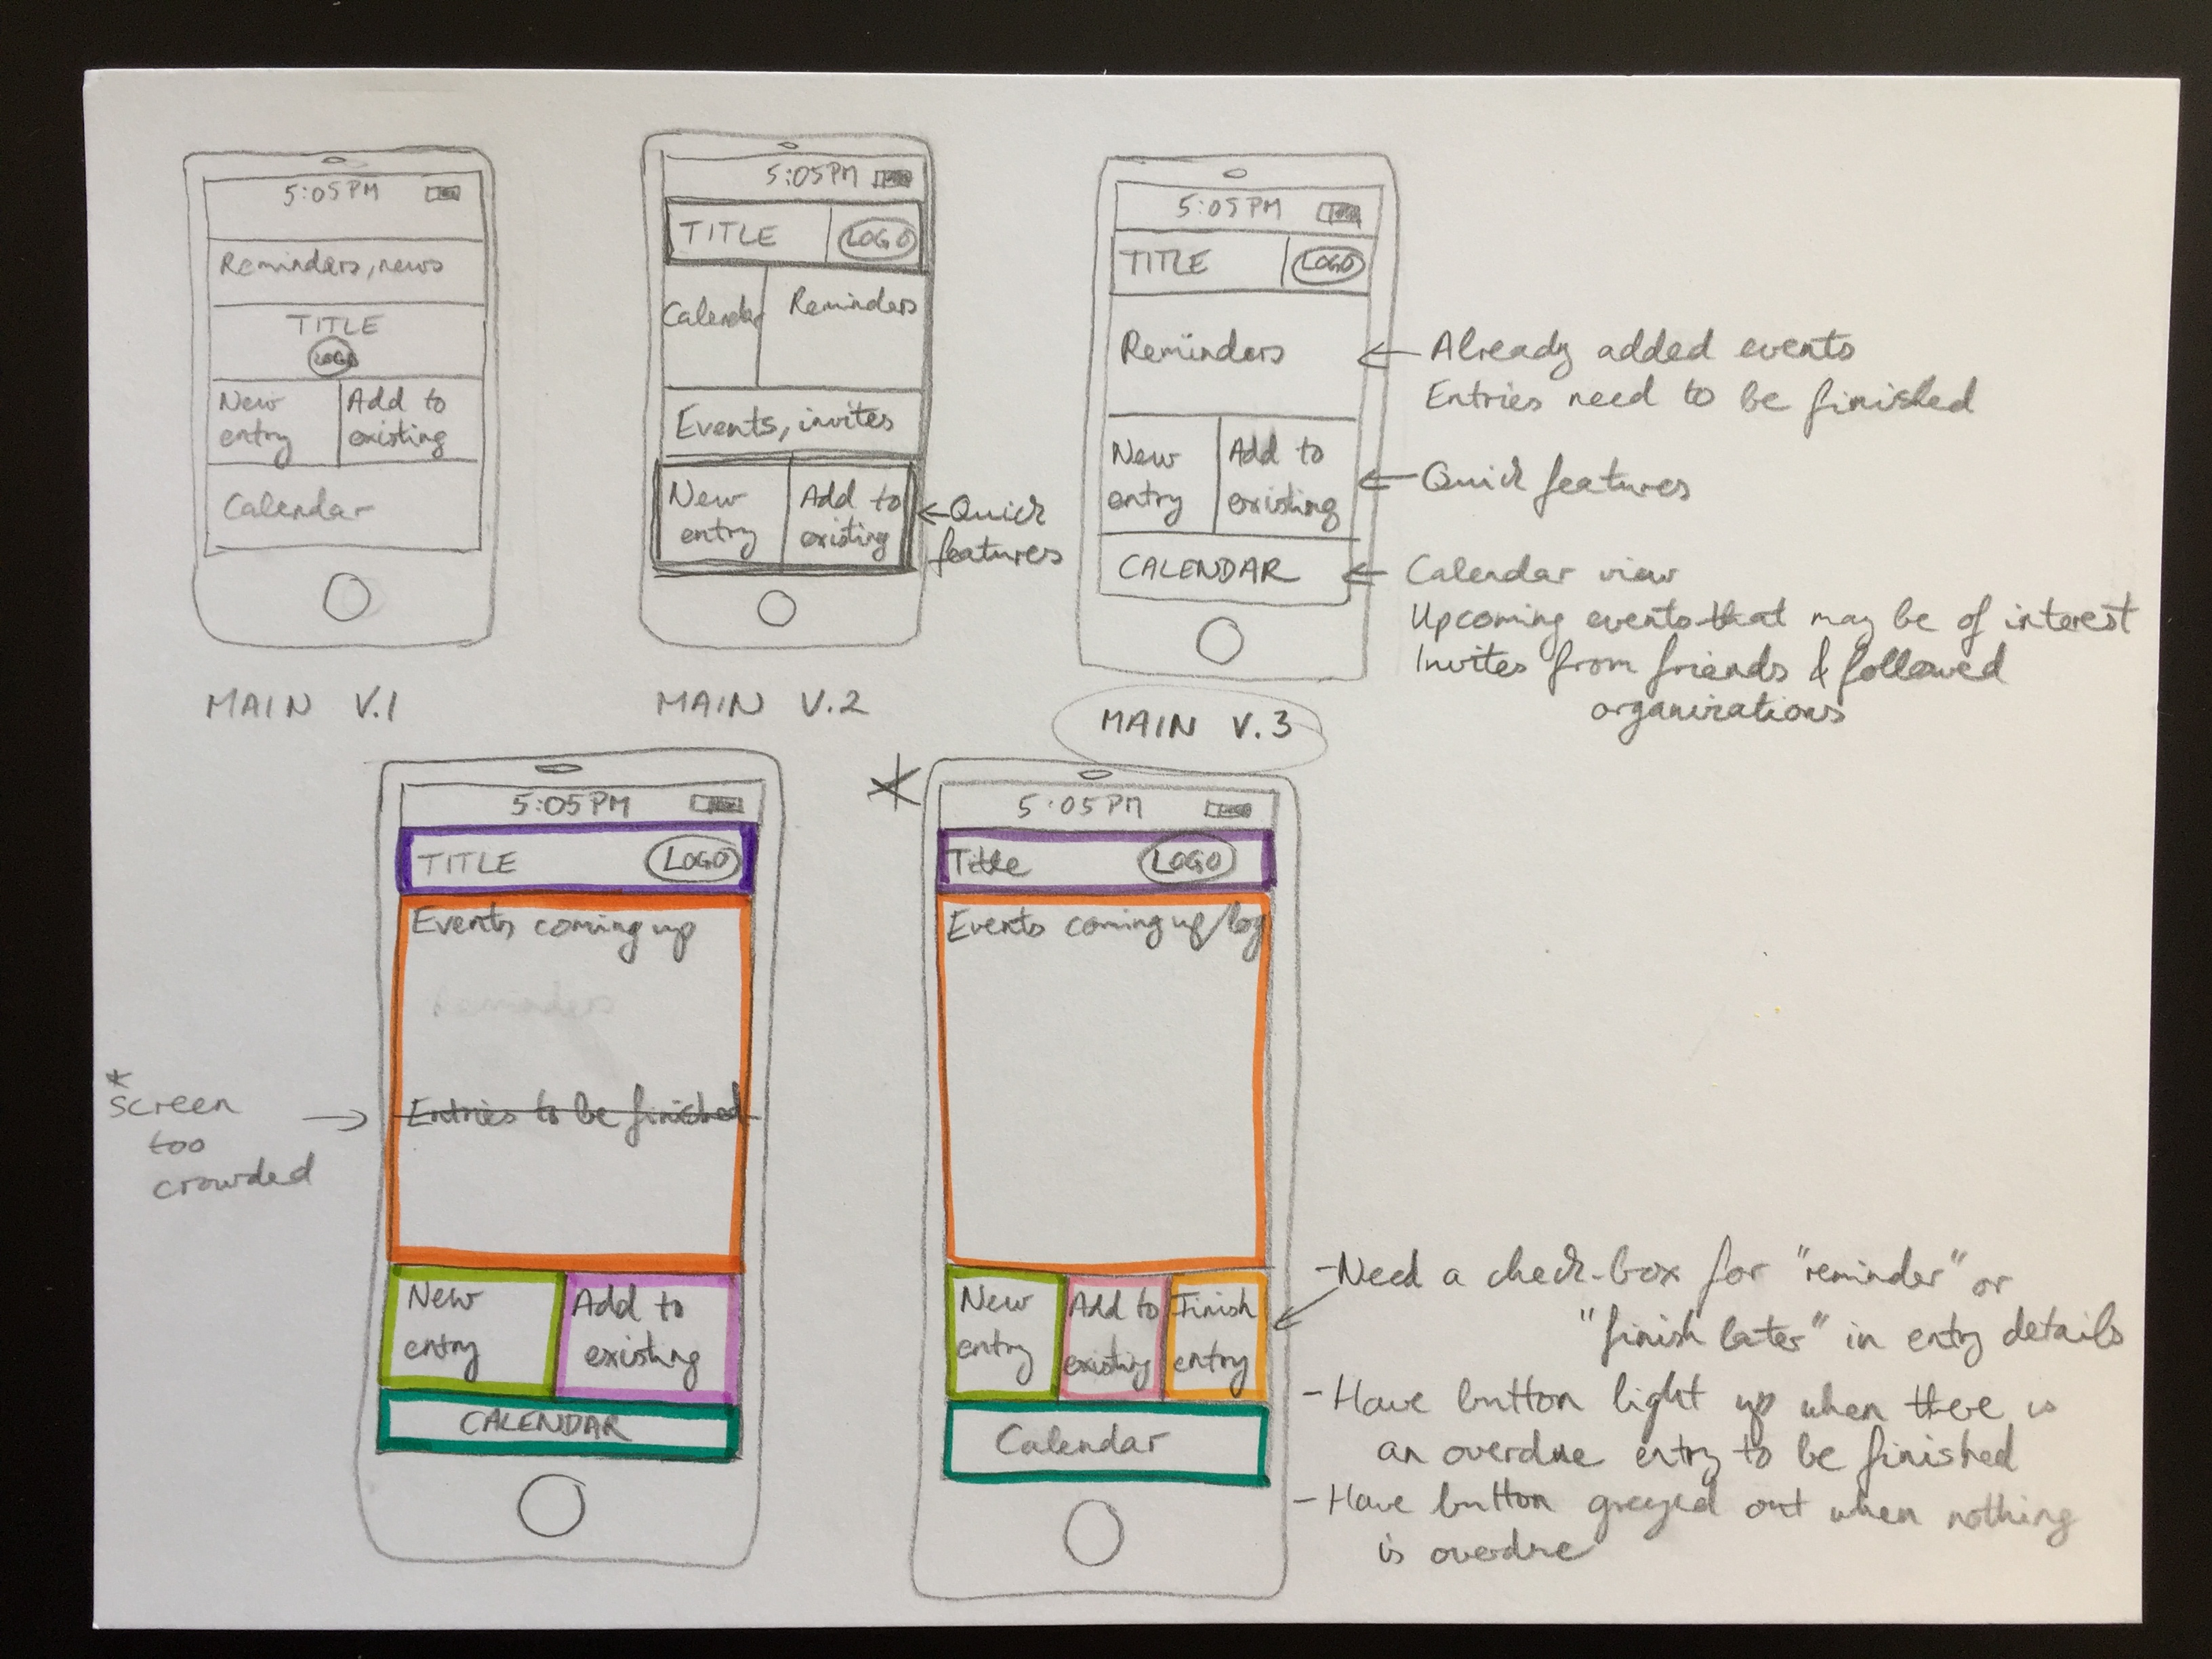 5:05PM
Reminders, news
TITLE
LOGO
New entry
Add to existing
Calendar
MAIN V.1
5:05PM
TITLE
LOGO
Calendar
Reminders
Events, invites
New entry
Add to existing
←Quick features
MAIN V.2
5:05PM
TITLE
LOGO
Reminders
New entry
Add to existing
CALENDAR
MAIN V.3
← Already added events
Entries need to be finished
← Quick features
← Calendar view
Upcoming events that may be of interest
Invites from friends & followed
organizations
* Screen
too
crowded
5:05PM
TITLE
LOGO
Events coming up
Entries to be finished
New entry
Add to existing
CALENDAR
*
5:05PM
Title
LOGO
Events coming up/log
New entry
Add to existing
Finish entry
Calendar
-Need a check-box for "reminder" or
"finish later" in entry details
- Have button light up when there is
an overdue entry to be finished
- Have button greyed out when nothing
is overdue